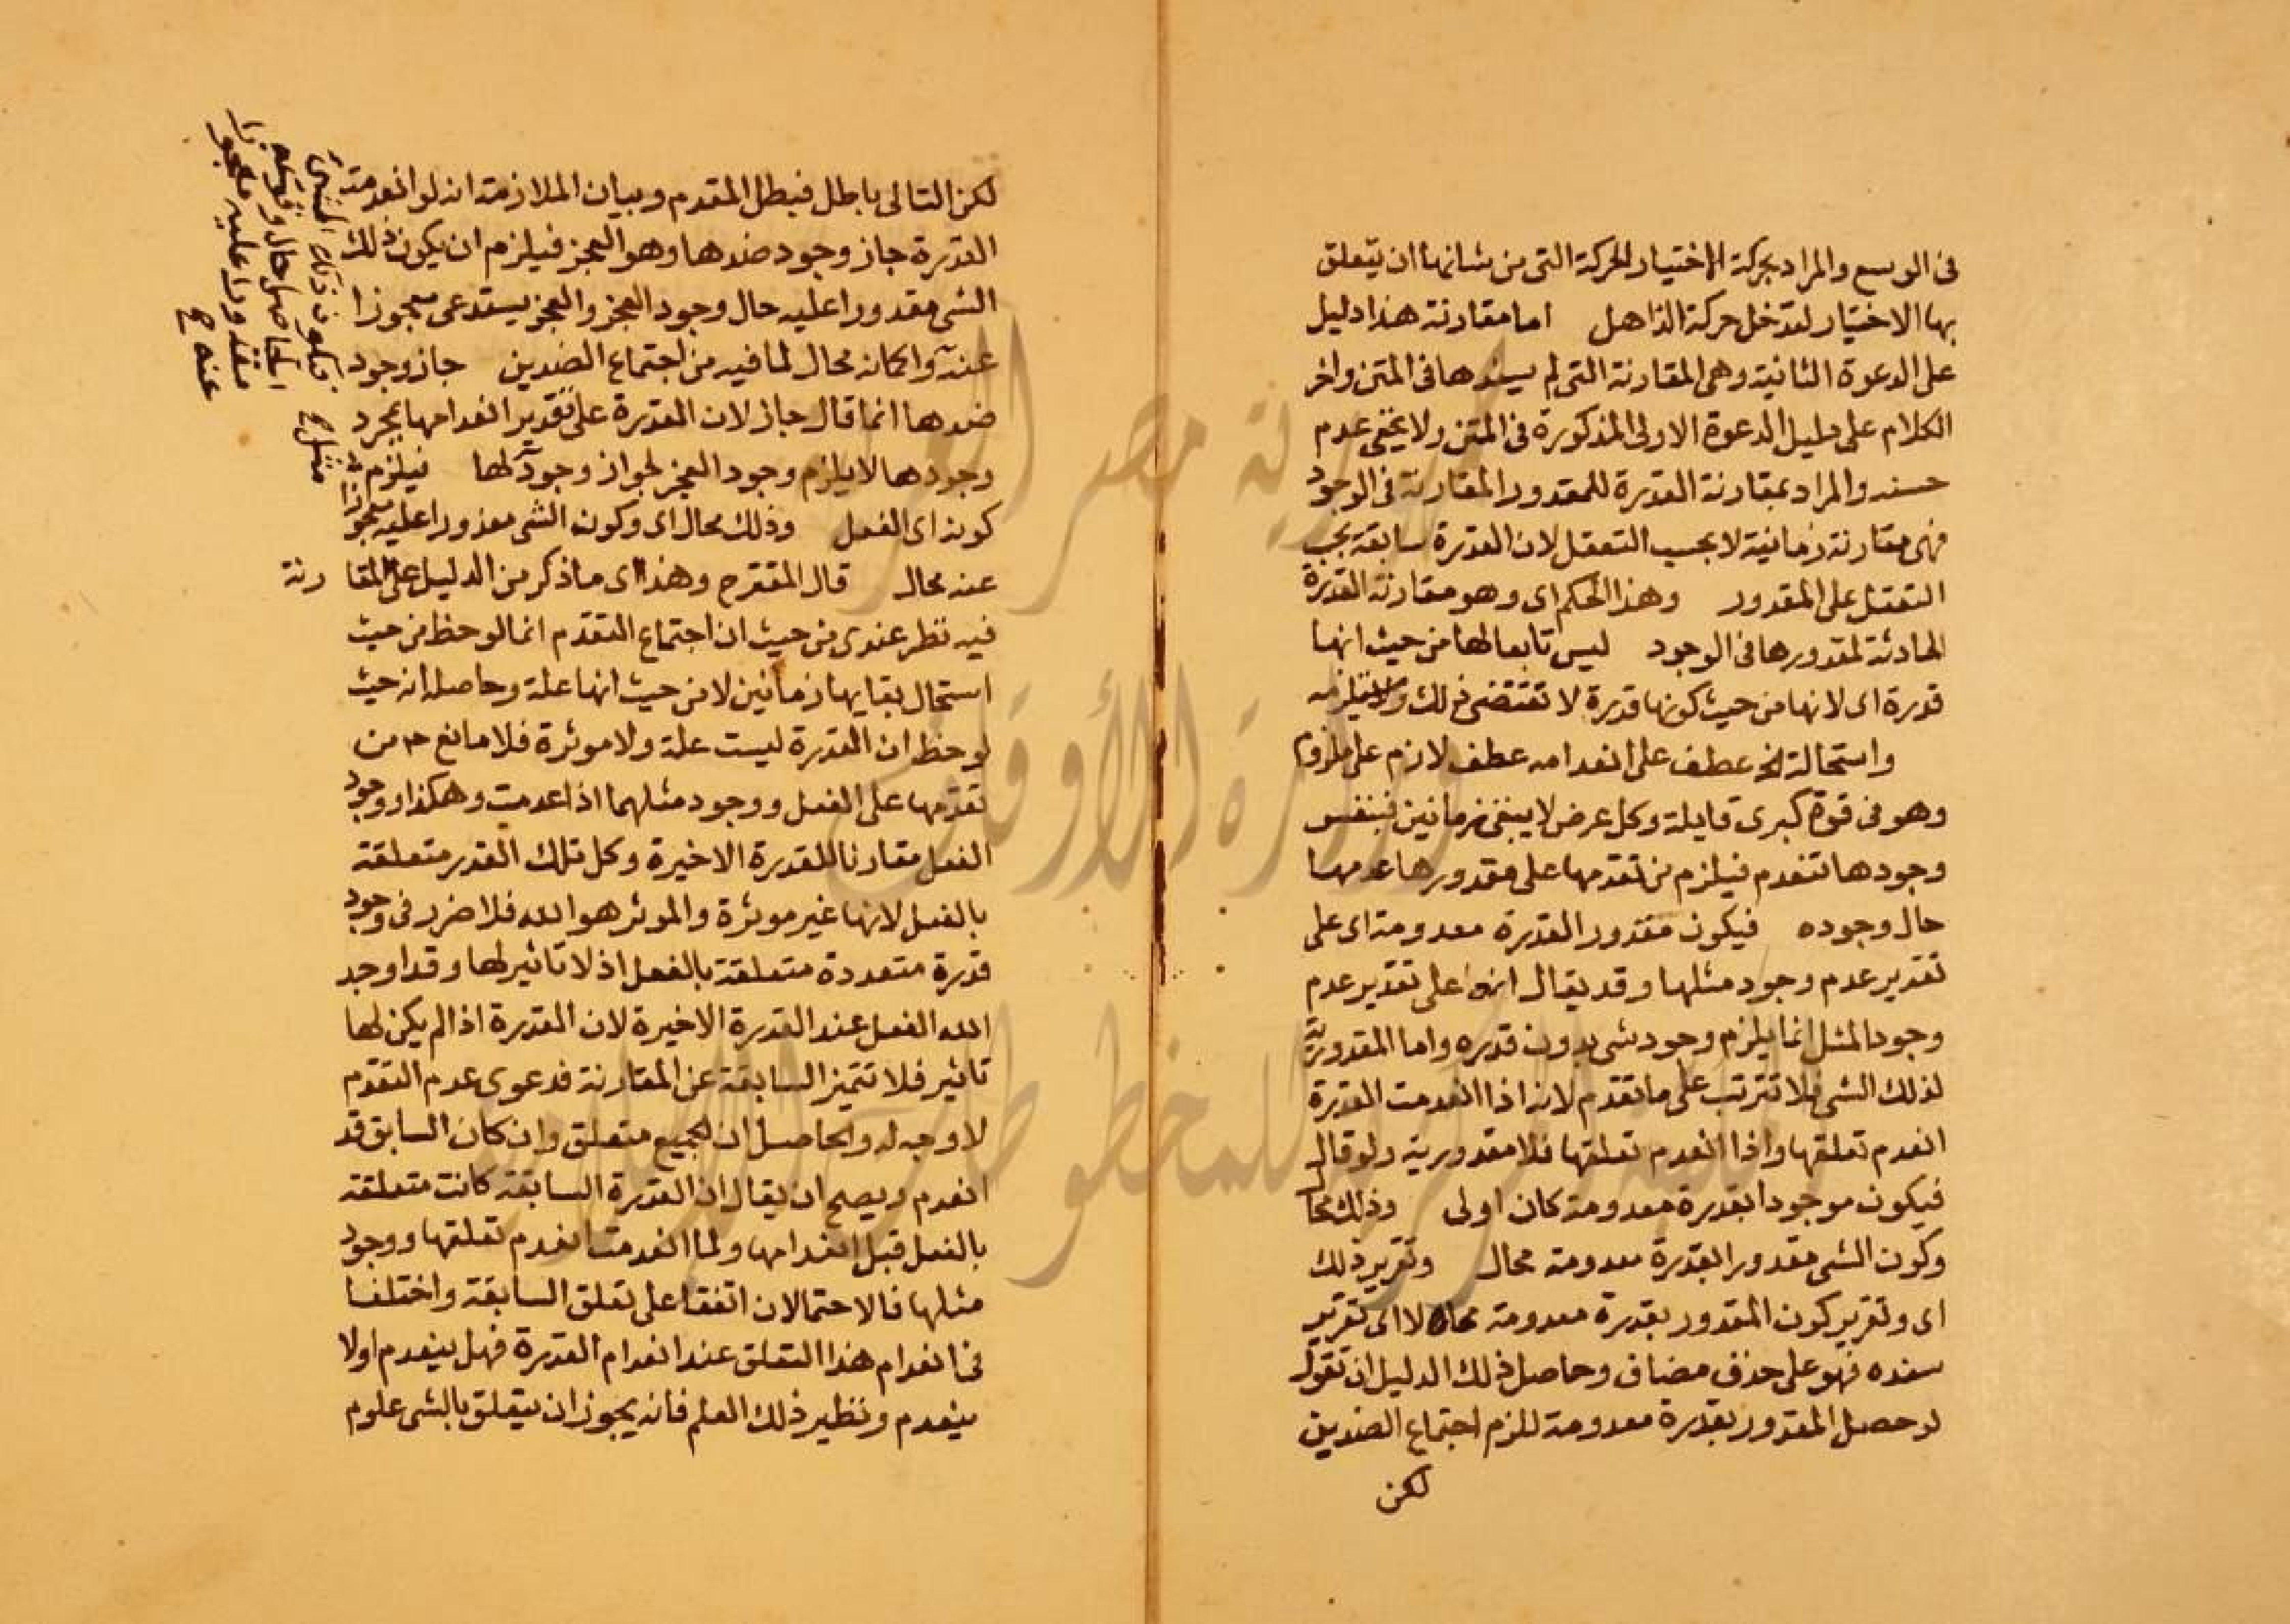 في الوسع والمراد بحركة الاختيار الحركة التي من شانها ان يتعلق
بها الاختيار لتدخل حركة الذاهل اما مقارنة هذا دليل
على الدعوة الثانية وهي المقارنة التي لم يسندها في المتن واخر
الكلام على دليل الدعوة الاولى المذكورة في المتن ولا يخفى عدم
حسنه والمراد بمقارنة القدرة للمقدور المقارنة في الوجود
فهي مقارنة زمانية لا بحسب التعقل لان القدرة سابقة بحسب
التعقل على المقدور وهذا الحكم اى وهو مقارنة القدرة
الحادثة لمقدورها في الوجود ليس تابعا لها من حيث انها
قدرة اى لانها من حيث كونها قدرة لا تقتضي ذلك ولا تستلزمه
واستحالة الخ عطف على انعدامه عطف لازم على ملزوم
وهو في قوة كبرى قايلة وكل عرض لا يبقى زمانين فبنفس
وجودها تنعدم فيلزم من تقدمها على مقدورها عدمها
حال وجوده فيكون مقدور القدرة معدومة اى على
تقدير عدم وجود مثلها وقد يقال انه على تقدير عدم
وجود المثل انما يلزم وجود شى بدون قدره واما المقدورية
لذلك الشى فلا تترتب على ما تقدم لانه اذا انعدمت القدرة
انعدم تعلقها واذا انعدم تعلقها فلا مقدورية ولو قال
فيكون موجودا بقدرة معدومة كان اولى وذلك محا
وكون الشى مقدورا بقدرة معدومة محال وتقرير ذلك
اى وتقرير كون المقدور بقدرة معدومة محال لا اى تقرير
سنده فهو على حذف مضاف وحاصل ذلك الدليل ان تقول
لو حصل المقدور بقدرة معدومة للزم اجتماع الضدين
لكن
لكن التالى باطل فبطل المقدم وبيان الملازمة انه لو انعدمت
القدرة جاز وجود ضدها وهو العجز فيلزم ان يكون ذلك
الشى مقدورا عليه حال وجود العجز والعجز يستدعى معجوزا
عنه وا كانه محال لما فيه من اجتماع الضدين جاز وجود
ضدها انما قال جاز لان القدرة على تقدير انعدامها بمجرد
وجودها لا يلزم وجود العجز لجواز وجود لها فيلزم
كونه اى الفعل وذلك محال اى وكون الشى مقدورا عليه معجوزا
عنه محال قال المقترح وهذا اى ما ذكر من الدليل على المقا رنة
فيه نظر عندى من حيث ان اجتماع التقدم انما لوحظ من حيث
استحال بقايها زمانين لا من حيث انها علة وحاصله انه حيث
لوحظ ان القدرة ليست علة ولا موثرة فلا مانع ح من
تقدمها على الفعل ووجود مثلهما اذا عدمت وهكذا ووجود
الفعل مقارنا للقدرة الاخيرة وكل تلك القدر متعلقة
بالفعل لانها غير موثرة والموثر هو الله فلا ضرر في وجود
قدرة متعددة متعلقة بالفعل اذ لا تاثير لها وقد اوجد
الله الفعل عند القدرة الاخيرة لان القدرة اذا لم يكن لها
تاثير فلا تتميز السابقة عن المقارنة فدعوى عدم التقدم
لا وجه له والحاصل ان الجميع متعلق وان كان السابق قد
انعدم ويصح ان يقال ان القدرة السابقة كانت متعلقة
بالفعل قبل انعدامها ولما انعدمت انعدم تعلقها ووجود
مثلها فالاحتمالان اتفقا على تعلق السابقة واختلفا
في انعدام هذا التعلق عند انعدام القدرة فهل ينعدم اولا
ينعدم ونظير ذلك العلم فانه يجوز ان يتعلق بالشى علوم
فيكون ذلك الشى
الحاصل حال
مقدورا عليه معجوزا
عنه ح
مثل ح